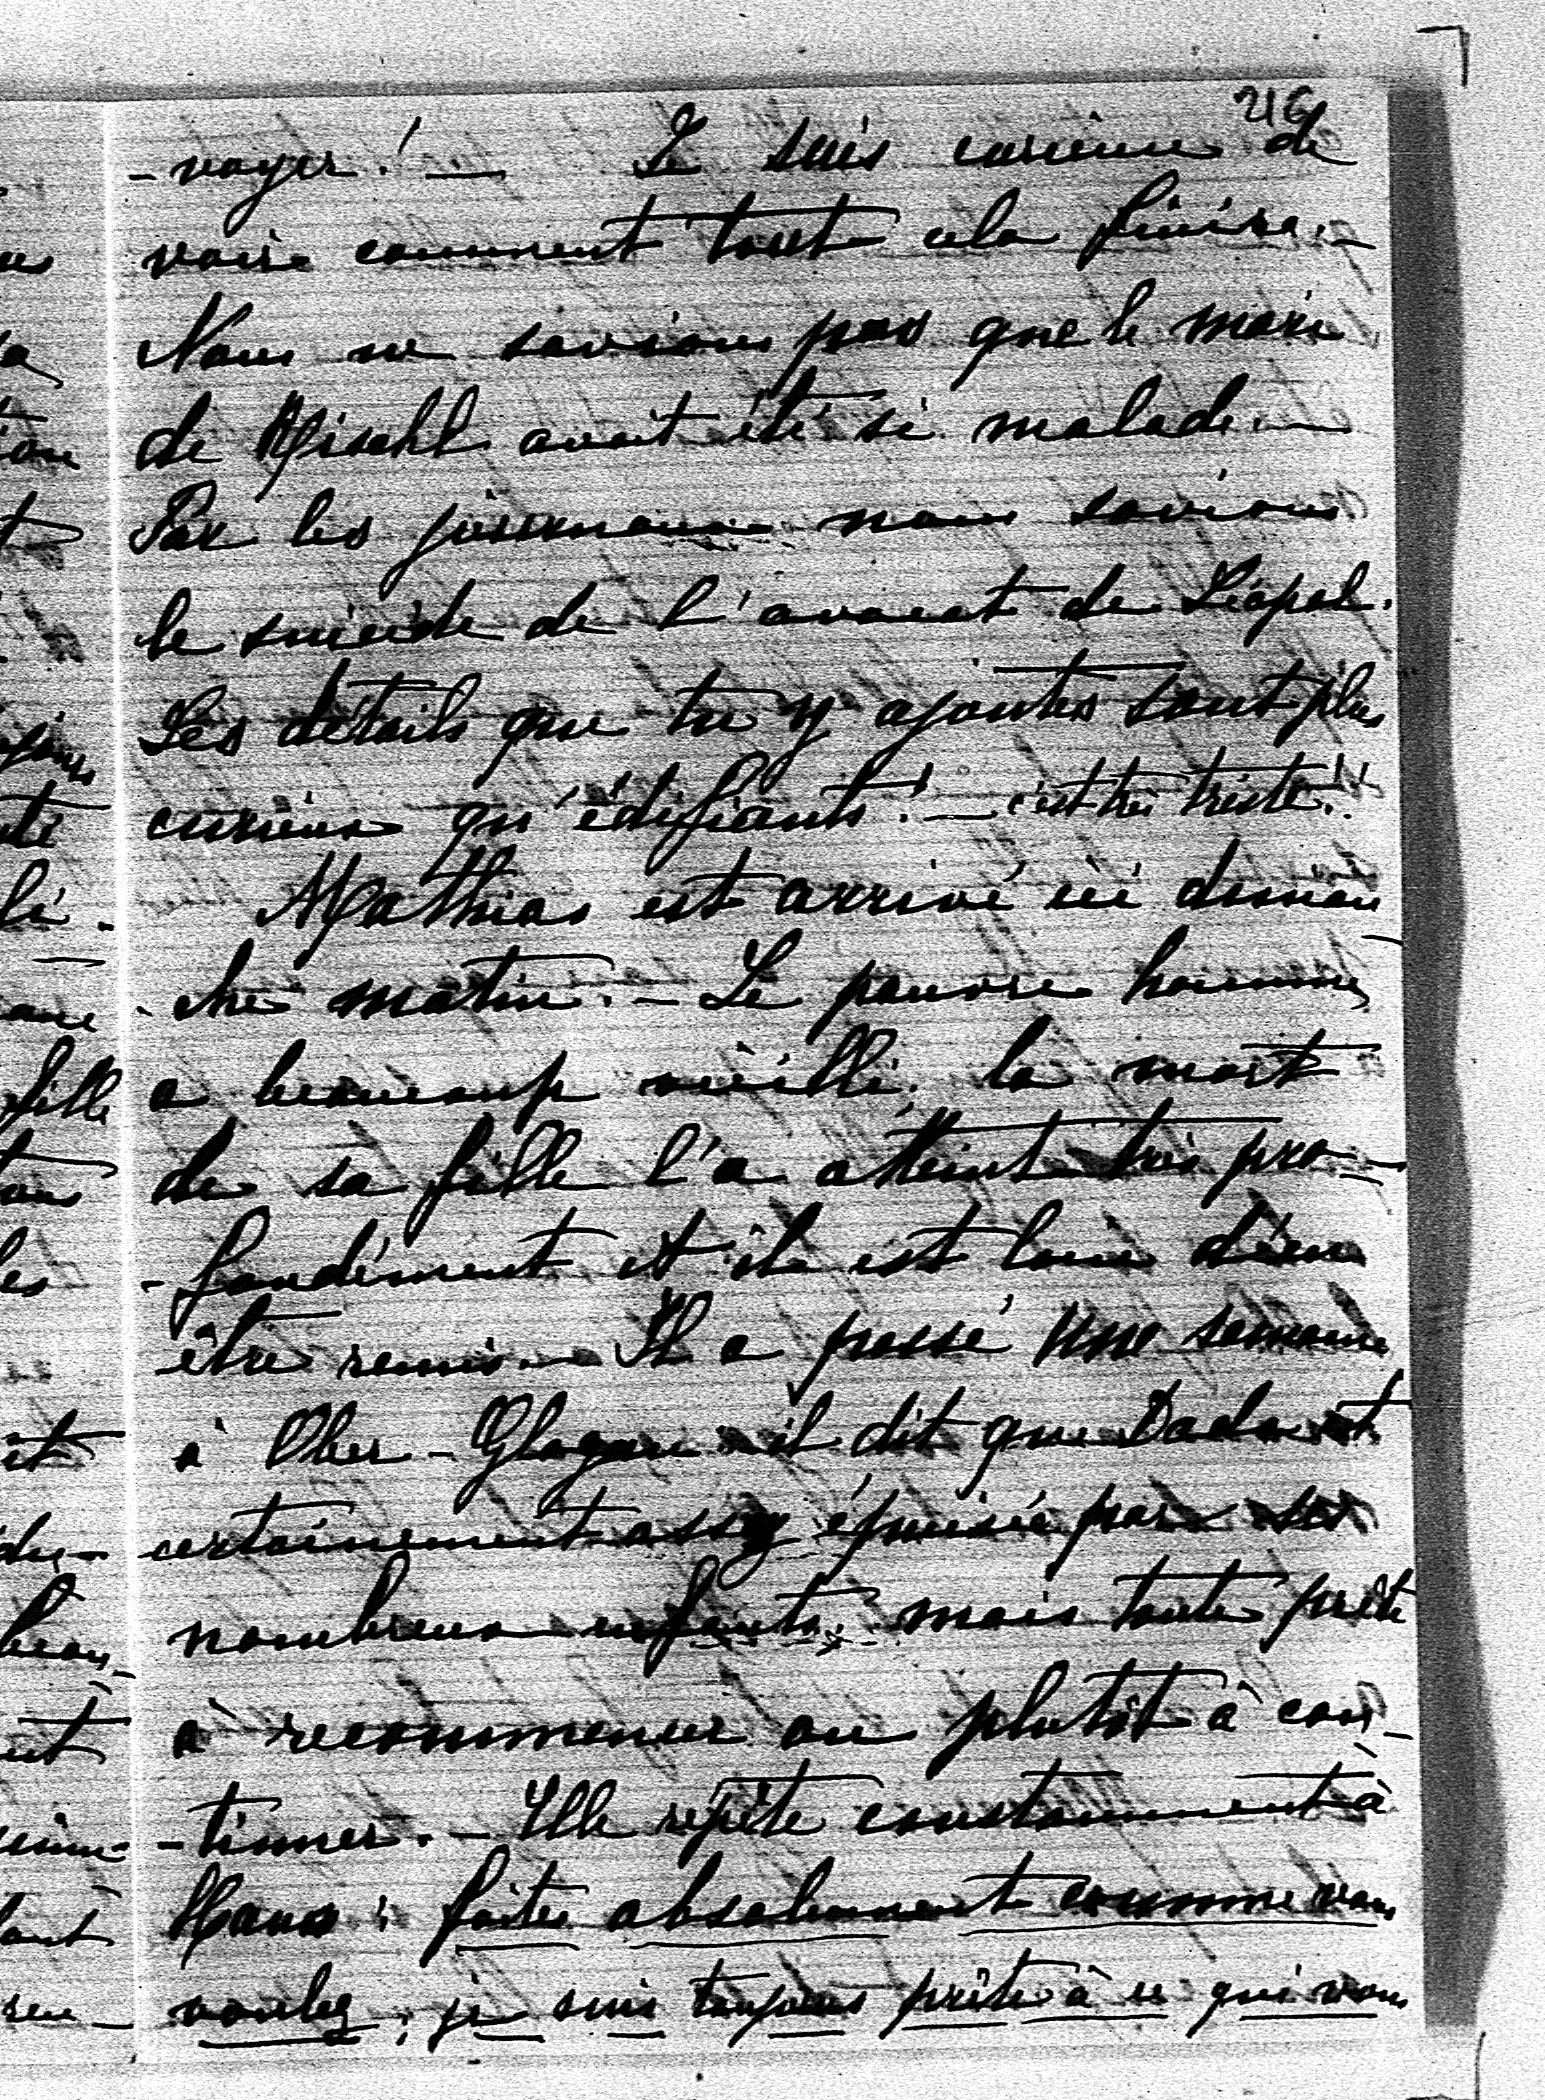 216
- voyer ! — Je suis curieuse de
voir comment tout cela finira. —
Nous ne savions pas que le mari
de avait été si malade. —
Par les journaux nous savions
le suicide de l'avocat de Léopol.
Les détails que tu y ajoutes sont plus
curieux qu'édifiants ! — c'est très triste !
Mathias est arrivé ici diman
- che matin. — Le pauvre homme
a beaucoup vieilli, la mort
de sa fille l'a atteint très pro-
- fondément et il est loin d'en
être remis. — Il a passé une semaine
à Ober - Glogau il dit que Dada est
certainement assez épuisée par ses
nombreux enfants, mais toute prête
à recommencer ou plutôt à con-
- tinuer. — Elle répète constamment à
Hans : faites absolument comme vous
voulez, je suis toujours prête à ce qui vous